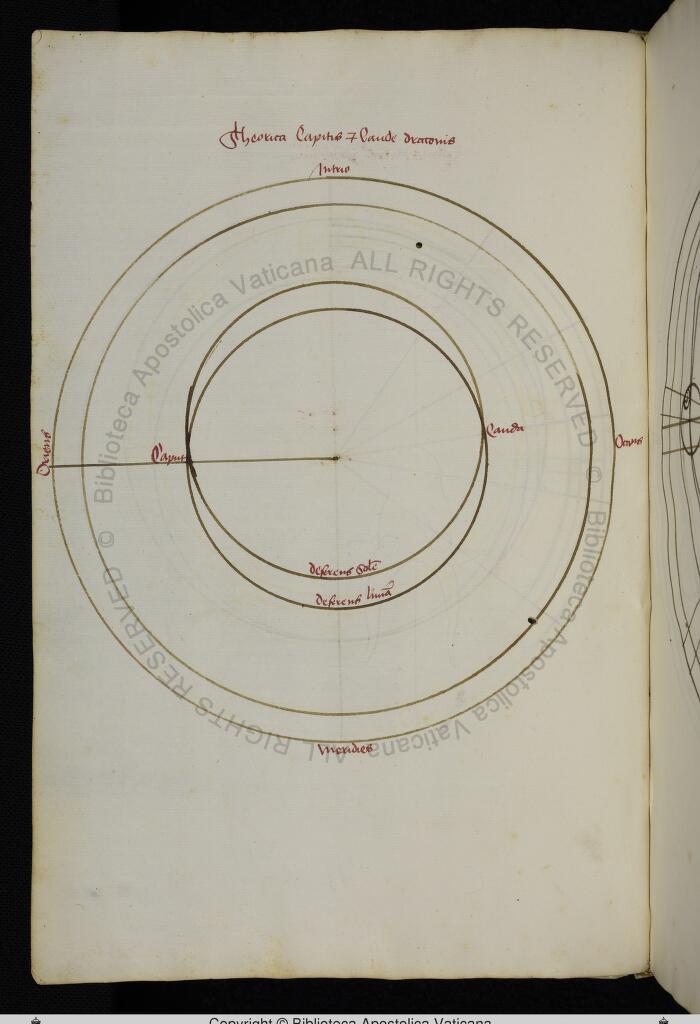 Theorica Capitis 7 Caude draconis
Oriens
Caput
Cauda
deferens Sole
deferens lunā
Meridies
© Biblioteca Apostolica Vaticana ALL RIGHTS RESERVED
© Biblioteca Apostolica Vaticana ALL RIGHTS RESERVED
Copyright © Biblioteca Apostolica Vaticana